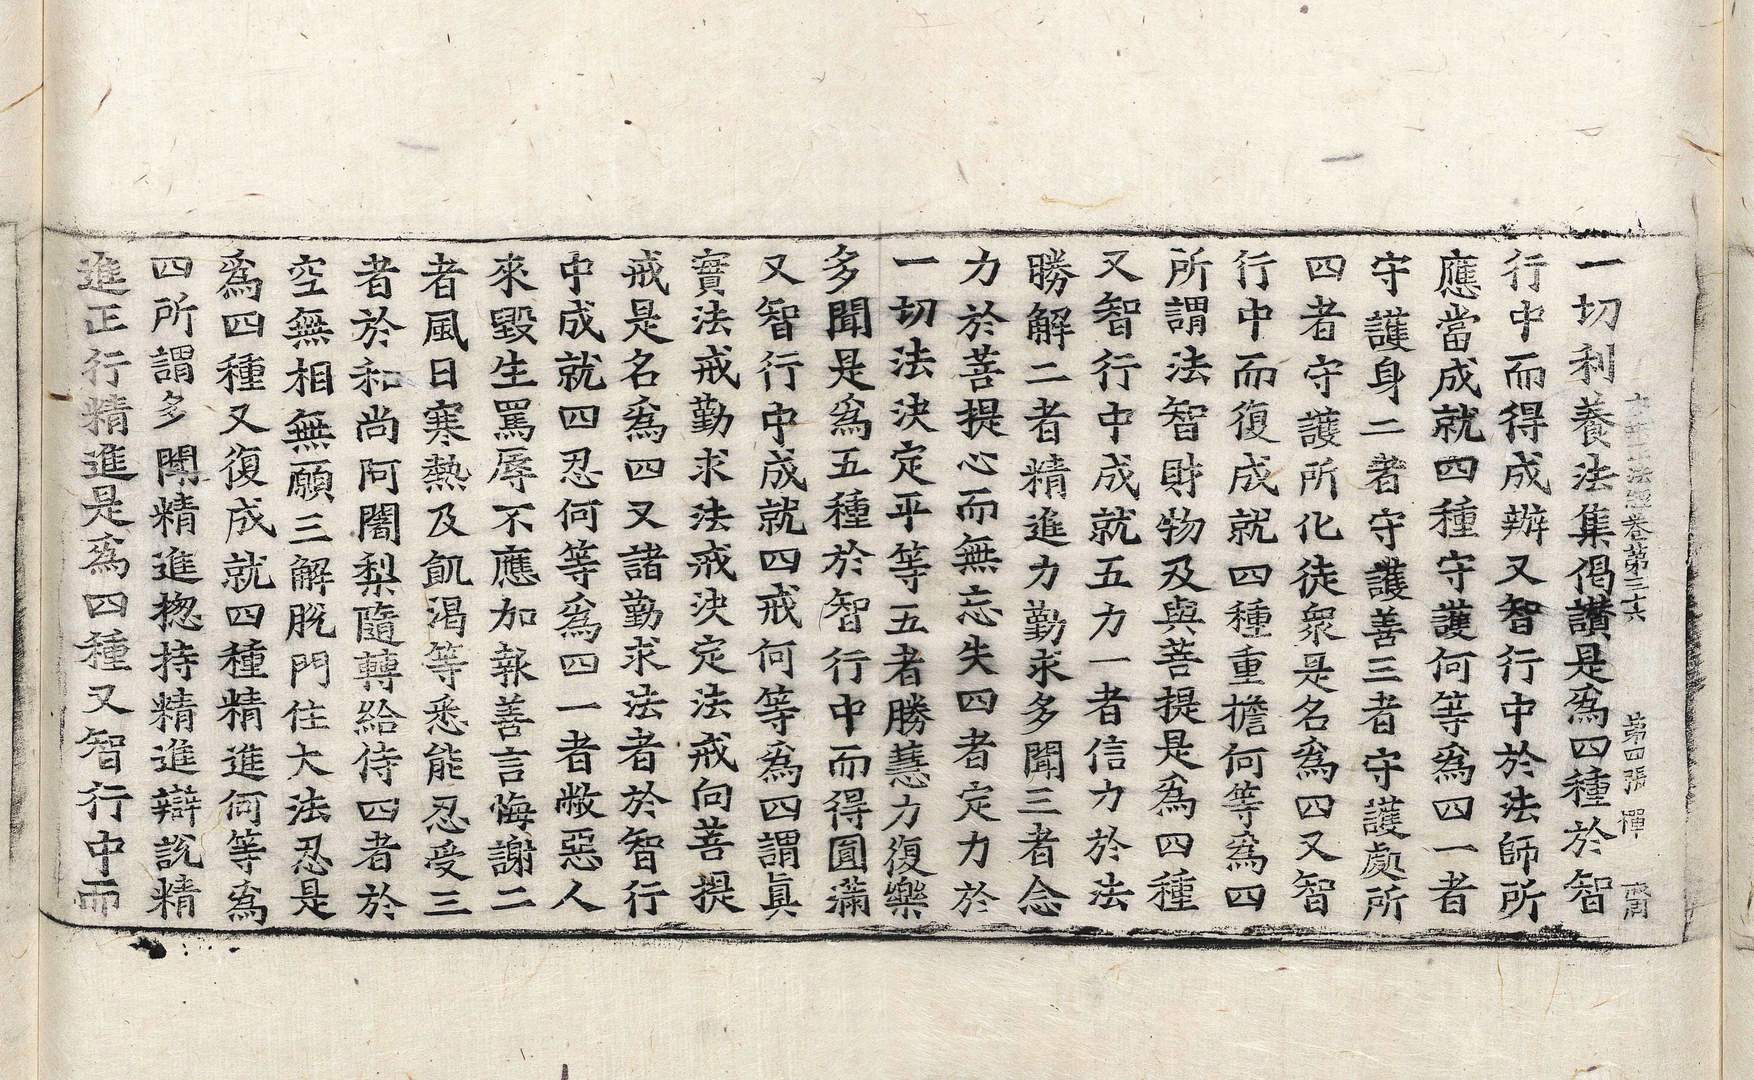 法經卷第三十六 第四張 憚
一切利養法集偈讚是爲四種於智
行中而得成辦又智行中於法師所
應當成就四種守護何等爲四一者
守護身二者守護善三者守護處所
四者守護所化徒衆是名爲四又智
行中而復成就四種重擔何等爲四
所謂法智財物及與菩提是爲四種
又智行中成就五力一者信力於法
勝解二者精進力勤求多聞三者念
力於菩提心而無忘失四者定力於
一切法決定平等五者勝慧力復樂
多聞是爲五種於智行中而得圓滿
又智行中成就四戒何等爲四謂眞
實法戒勤求法戒決定法戒向菩提
戒是名爲四又諸勤求法者於智行
中成就四忍何等爲四一者敝惡人
來毀生罵辱不應加報善言悔謝二
者風日寒熱及飢渴等悉能忍受三
者於和尚阿闍梨隨轉給侍四者於
空無相無願三解脫門住大法忍是
爲四種又復成就四種精進何等爲
四所謂多聞精進揔持精進辯說精
進正行精進是爲四種又智行中而